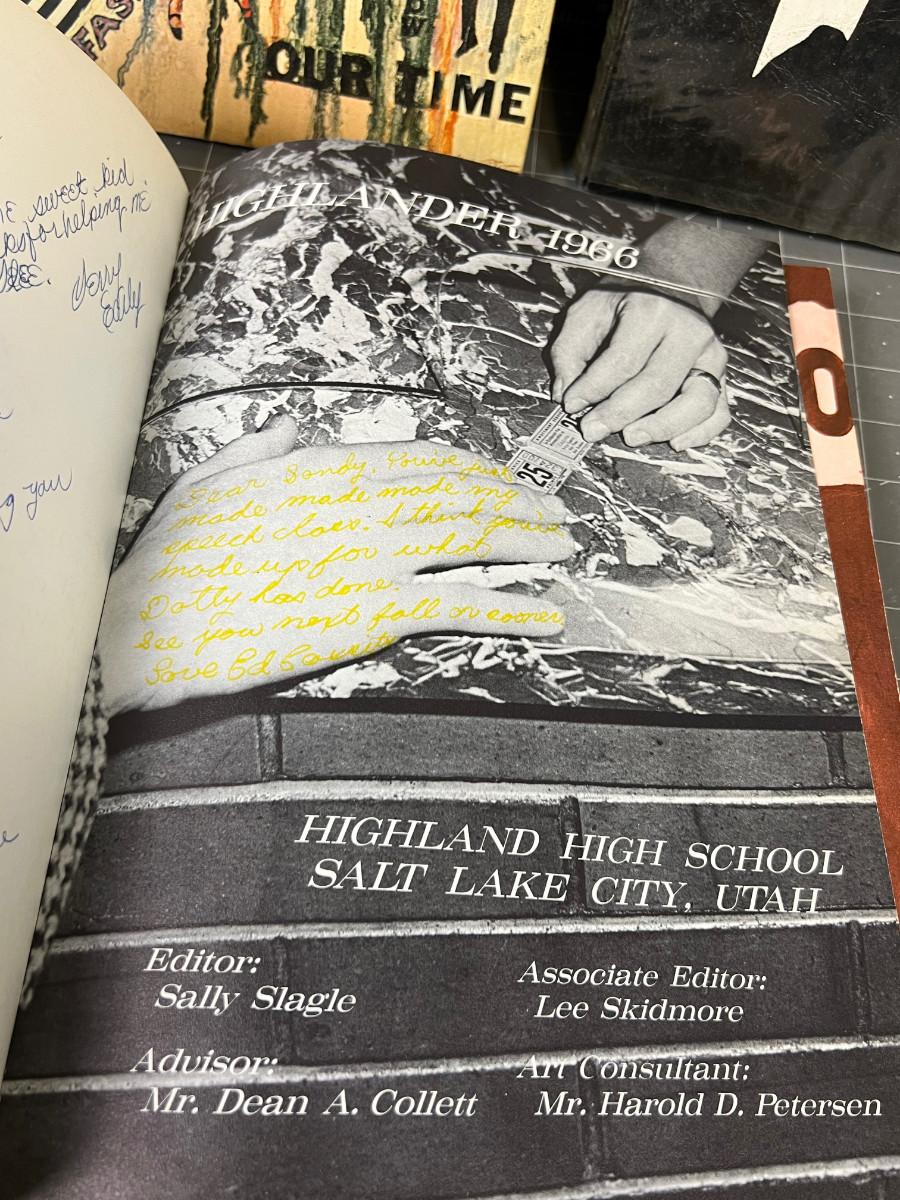 OUR TIME
HIGHLANDER 1966
sweet kid
for helping me
Jerry
25
Dear Sandy, You've just
made made made my
speech class. I think you've
made up for what
Dotty has done.
See you next fall or sooner
Love Ed
you
HIGHLAND HIGH SCHOOL
SALT LAKE CITY, UTAH
Editor:
Sally Slagle
Associate Editor:
Lee Skidmore
Advisor:
Mr. Dean A. Collett
Art Consultant:
Mr. Harold D. Petersen